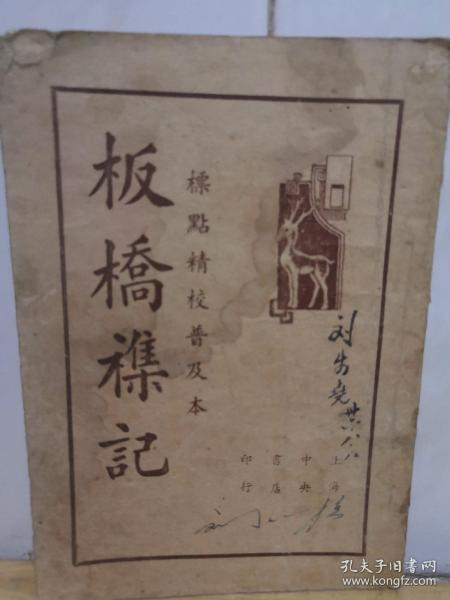 板橋襍記
標點精校普及本
上海
中央
書店
印行
孔夫子旧书网
www.kongfz.com